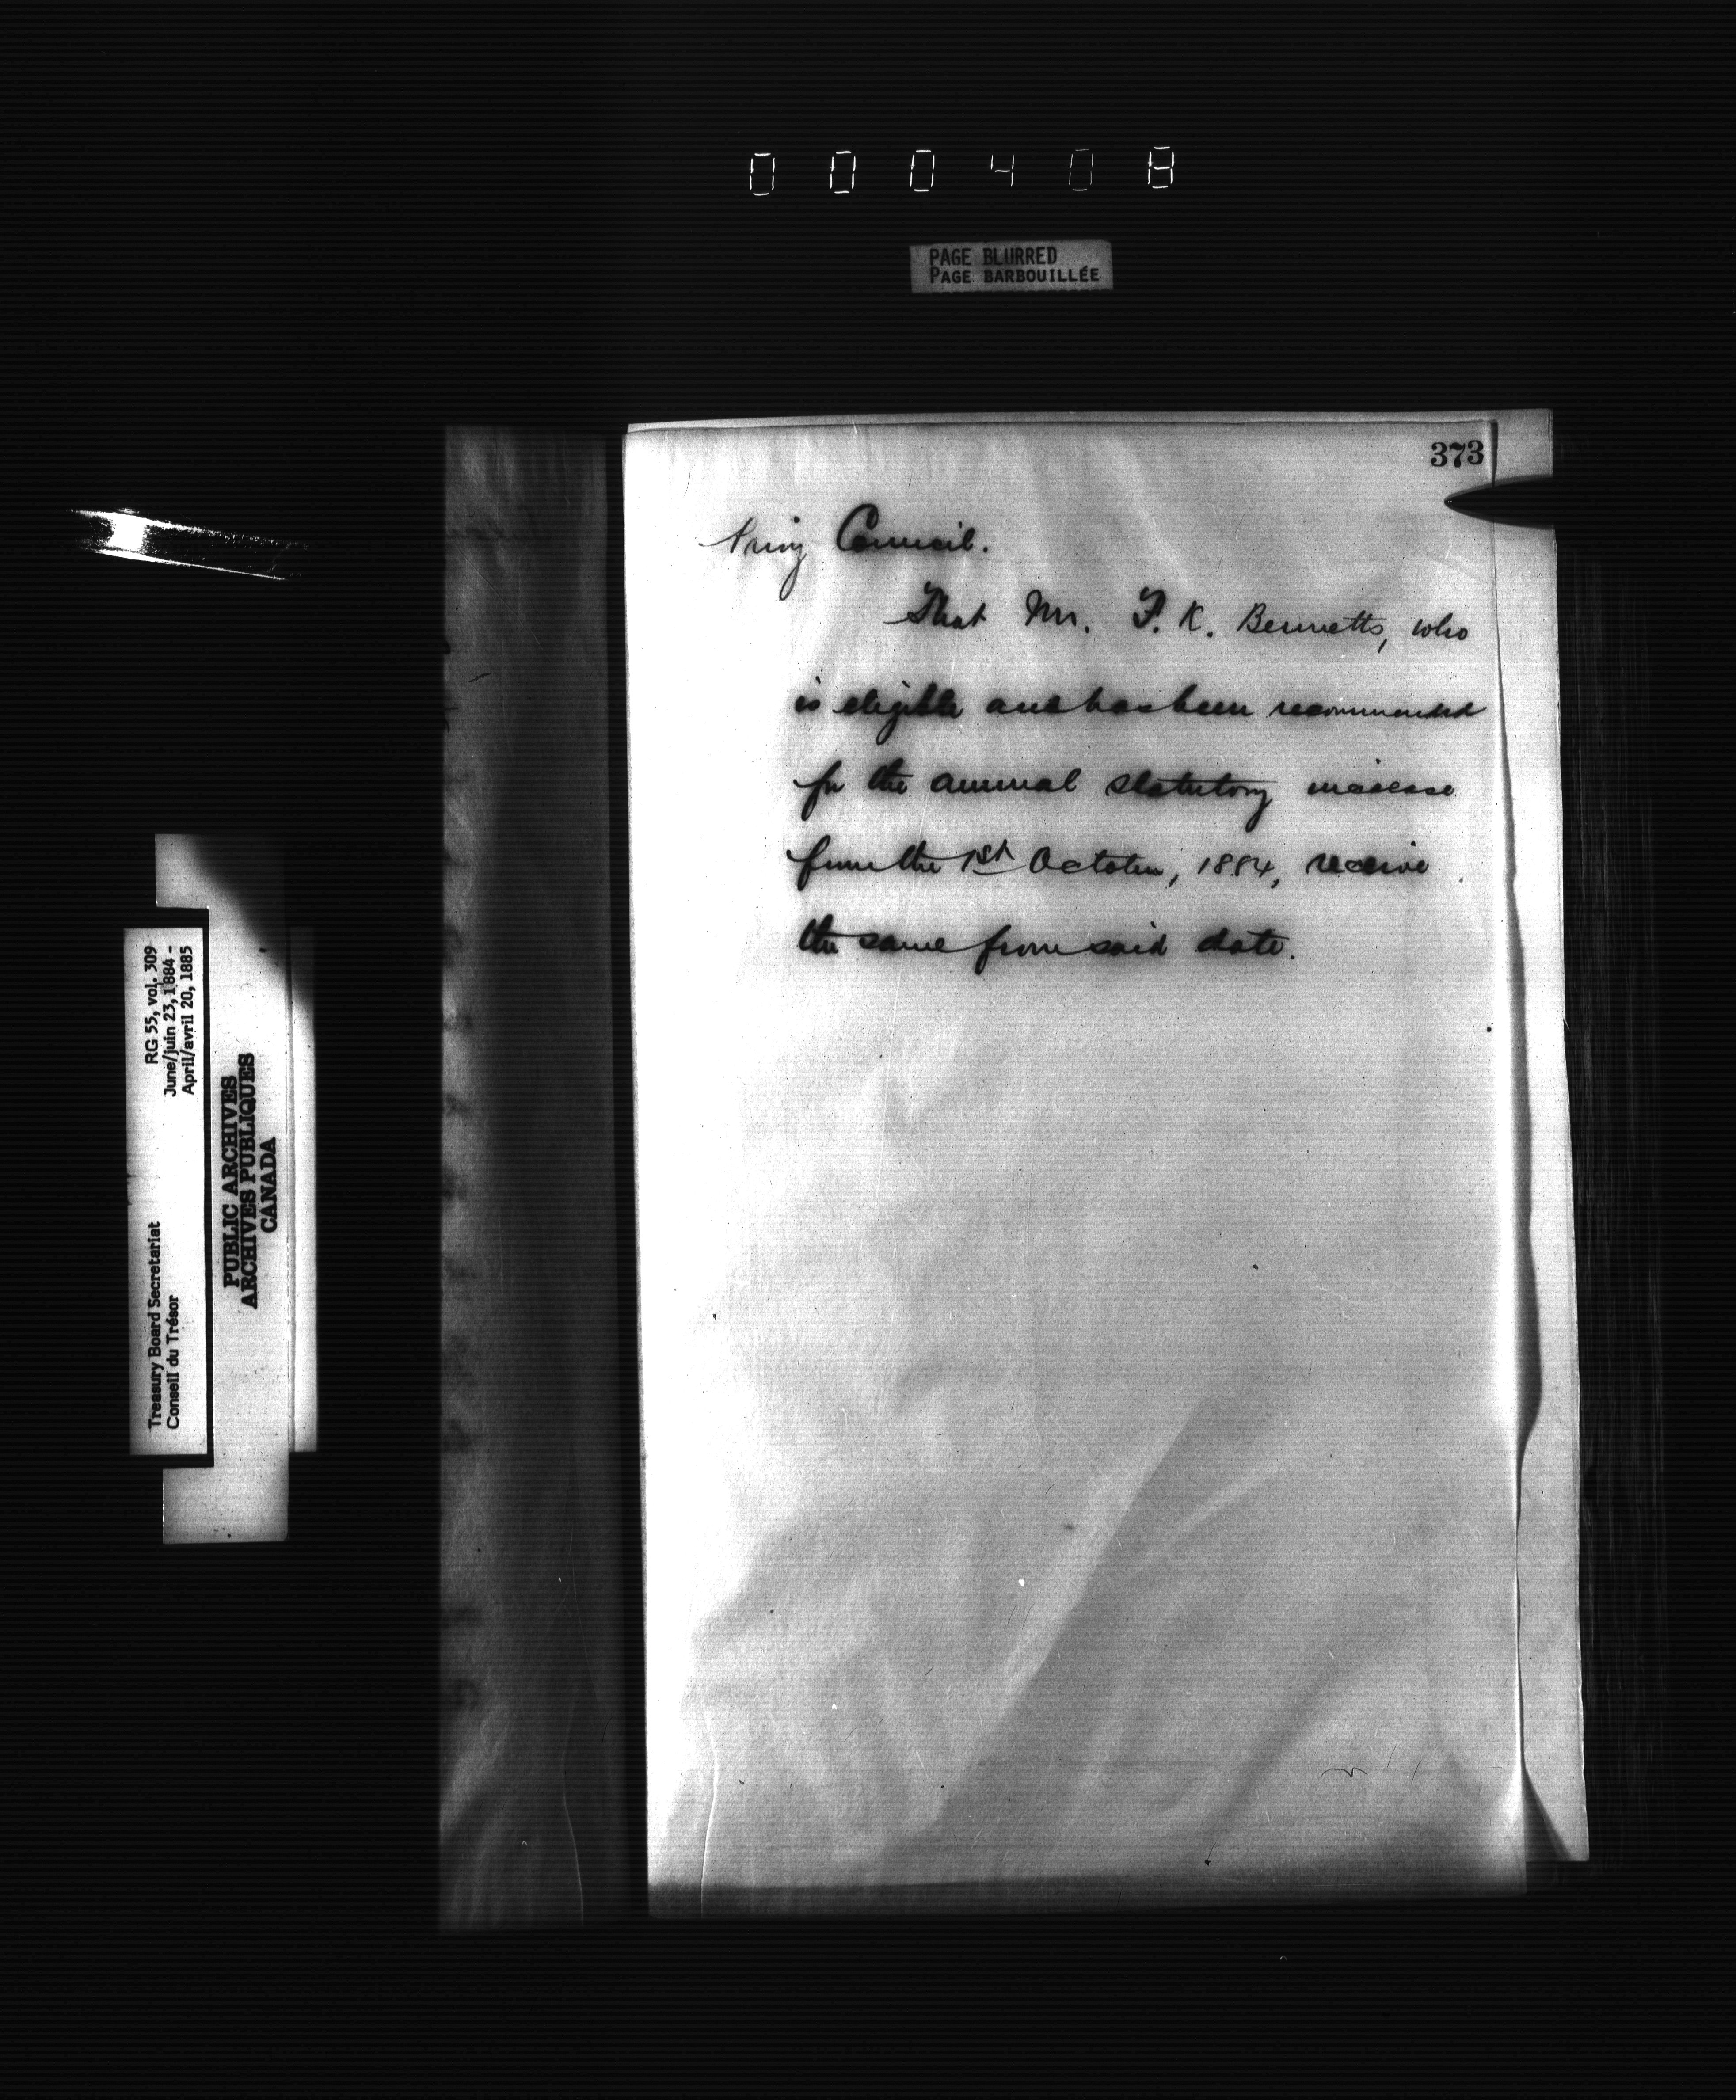 000408
PAGE BLURRED
PAGE BARBOUILLÉE
373
Privy Council.
That Mr. F. K. Bennetts, who
is eligible and has been recommended
for the annual statutory increase
from the 1st October, 1884, receive
the same from said date.
RG 55, vol. 309
June/juin 23, 1884 -
April/avril 20, 1885
Treasury Board Secretariat
Conseil du Trésor
PUBLIC ARCHIVES
ARCHIVES PUBLIQUES
CANADA